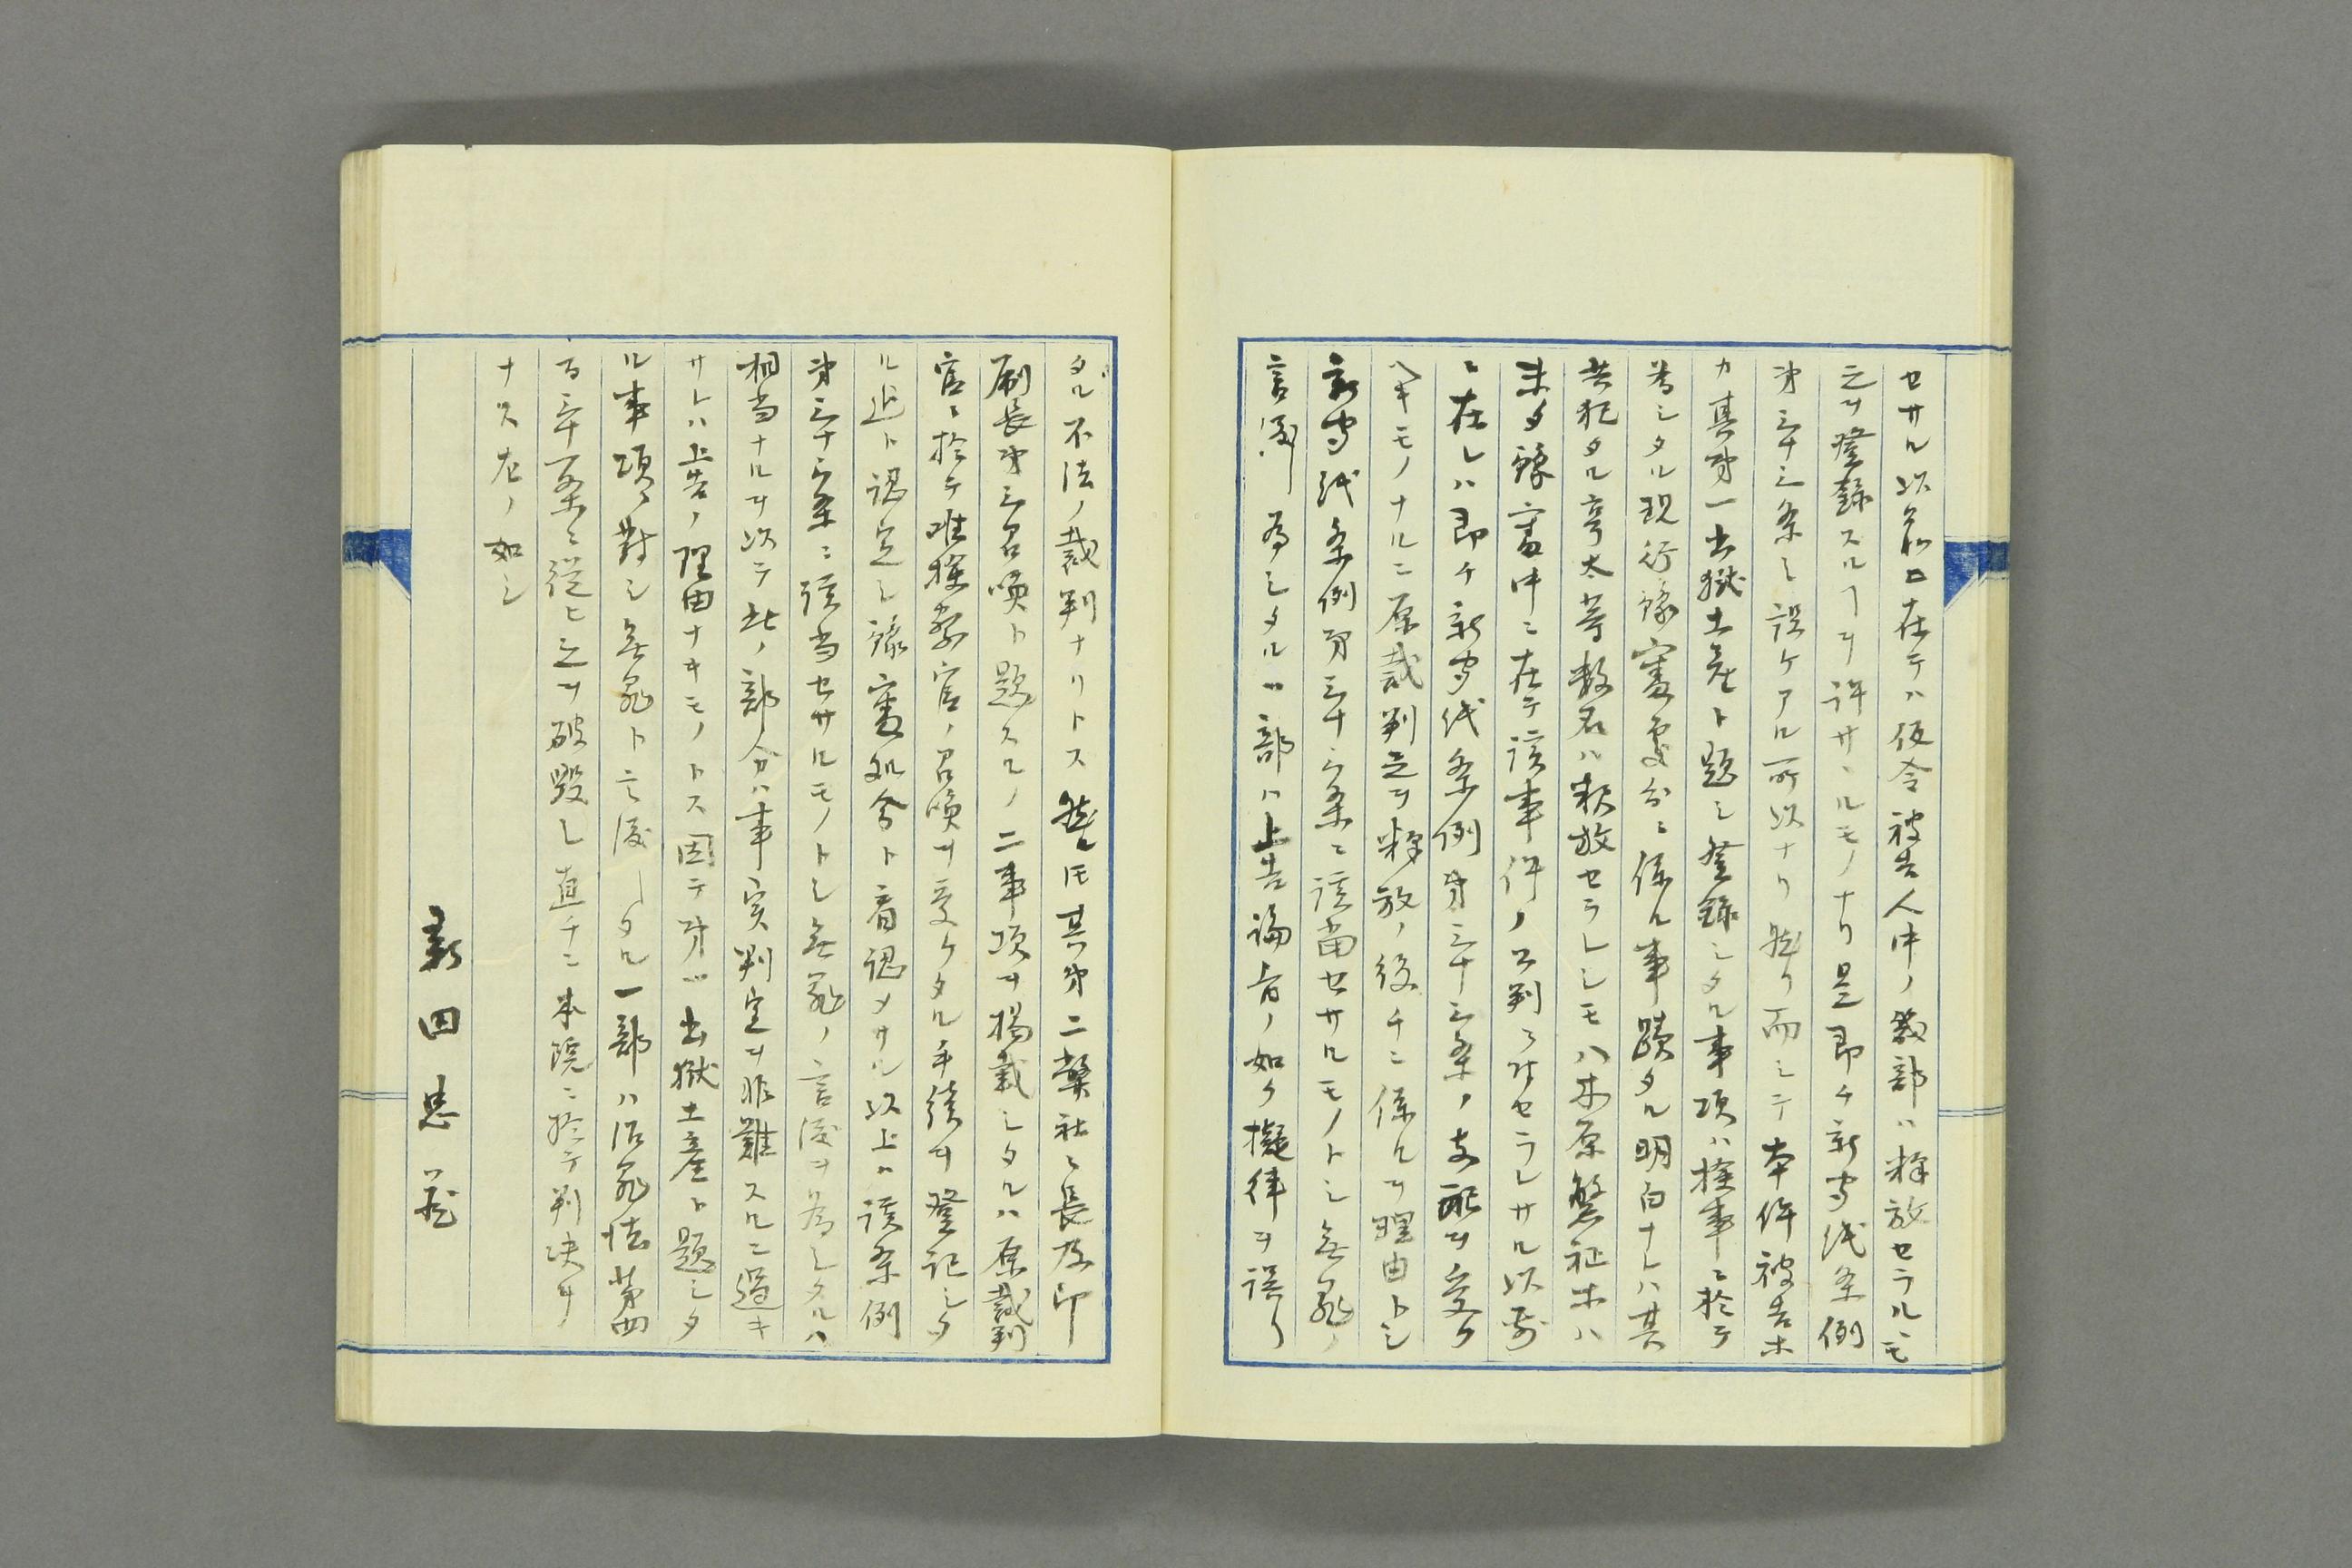 セサル以前ニ在テハ仮令被告人中ノ幾部ハ釈放セラルヽモ
之ヲ登録スルヿヲ許サヽルモノナリ是即チ新聞紙条例
第三十三条ニ設ケアル所以ナリ然リ而シテ本件被告ホ
カ其第一出獄土産ト題シ登録シタル事項ハ検事ニ於テ
為シタル現行予審処分ニ係ル事蹟タル明白ナレハ其
共犯タル等数名ハ釈放セラレシモ八木原繁祉ホハ
未タ予審中ニ在テ該事件ノ公判ニ付セラレサル以前
ニ在レハ即チ新聞紙条例第三十三条ノ支配ヲ受ク
ヘキモノナルニ原裁判之ヲ釈放ノ後チニ係ルヲ理由トシ
新聞紙条例第三十三条ニ該当セサルモノトシ無罪ノ
言渡ヲ為シタル一部ハ上告論旨ノ如ク擬律ヲ誤リ
タル不法ノ裁判ナリトス然レ𪜈其第二弊社々長及印
刷長第三召喚ト題スルノ二事項ヲ掲載シタルハ原裁判
官ニ於テ唯検察官ノ召喚ヲ受ケタル手続ヲ登記シタ
ル迄ト認定シ予審処分ト看認メサル以上ハ該条例
第三十三条ニ該当セサルモノトシ無罪ノ言渡ヲ為シタルハ
相当ナルヲ以テ此ノ部分ハ事実判定ヲ非難スルニ過キ
サレハ上告ノ理由ナキモノトス因テ第一出獄土産ト題シタ
ル事項ニ対シ無罪ト言渡シタル一部ハ治罪法第四
百三十一条ニ従ヒ之ヲ破毀シ直チニ本院ニ於テ判决ヲ
ナス左ノ如シ
新田